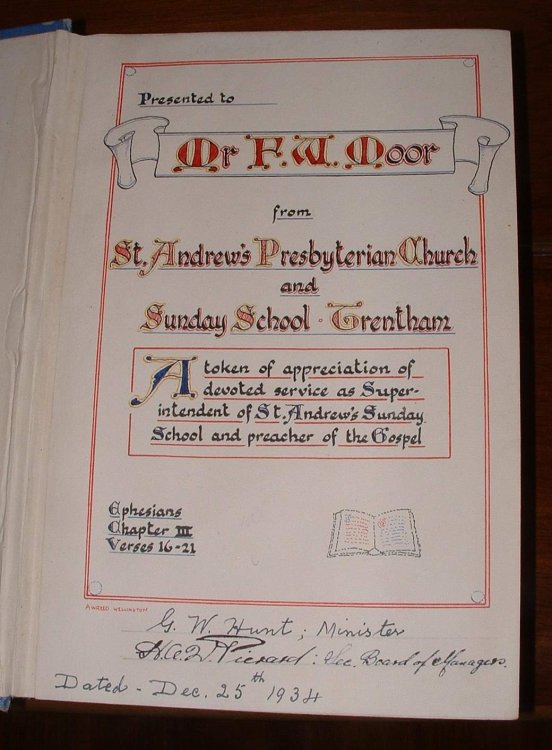 Presented to
Mr F. W. Moor
from
St. Andrew's Presbyterian Church
and
Sunday School - Trentham
A token of appreciation of
devoted service as Super-
intendent of St. Andrew's Sunday
School and preacher of the Gospel
Ephesians
Chapter III
Verses 16-21
WELLINGTON
G. W. Hunt; Minister
Pierard: Sec. Board of Managers.
Dated - Dec. 25th 1934